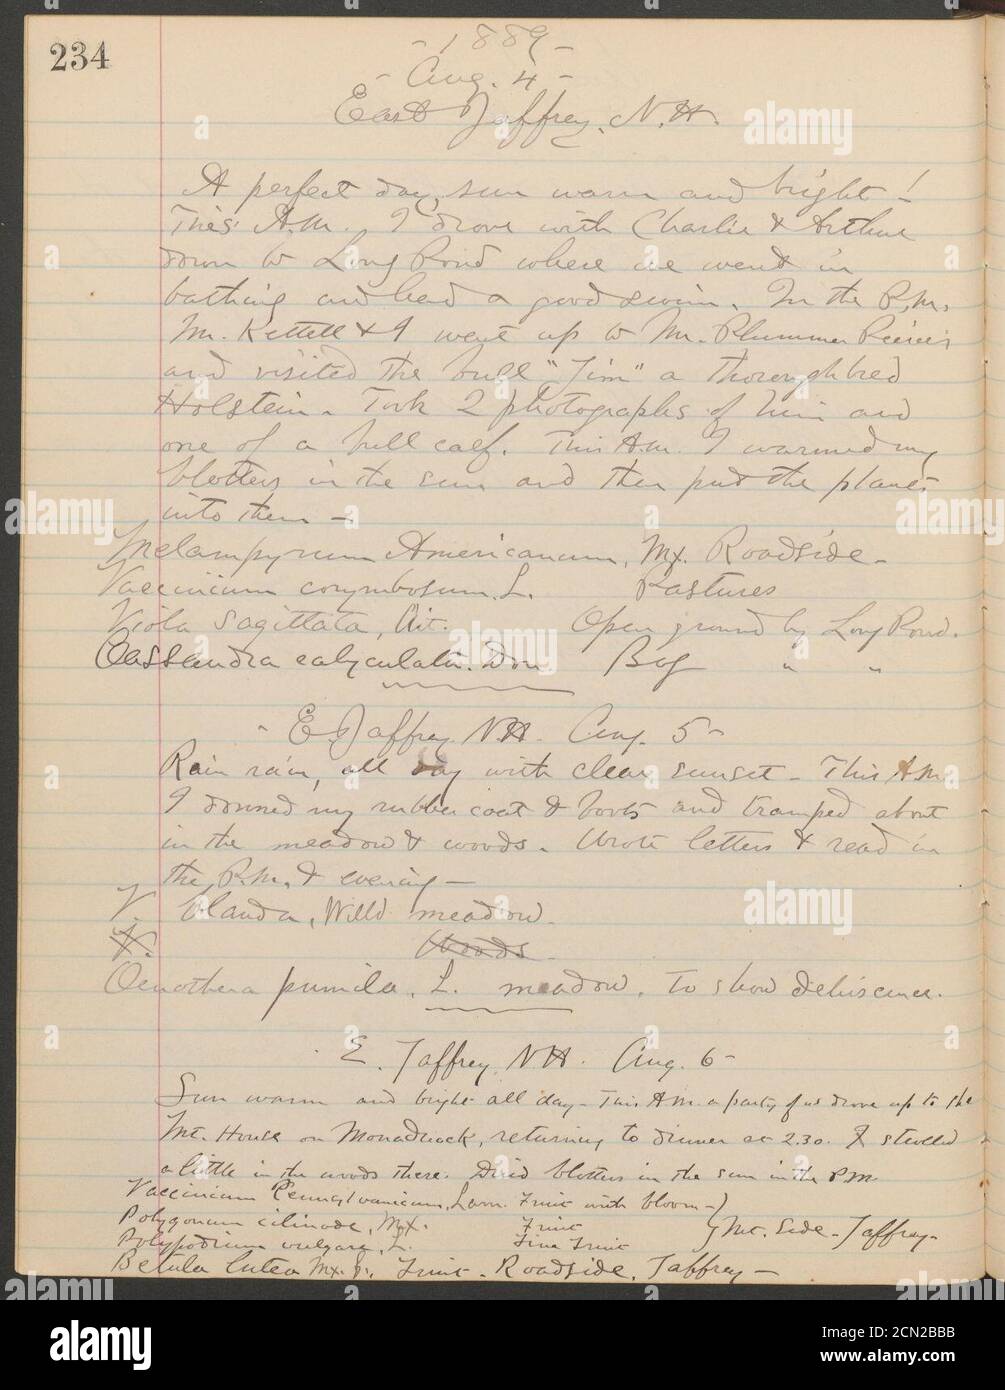 234
- 1889 -
- Aug. 4 -
East Jaffrey, N.H.
A perfect day, sun warm and bright!
This A.M. I drove with Charlie & Arthur
down to Long Pond where we went in
bathing and had a good swim. In the P.M.
Mr. Kettell & I went up to Mr. Plummer Peirce's
and visited the bull "Jim" a thoroughbred
Holstein. Took 2 photographs of him and
one of a bull calf. This A.M. I warmed my
blotters in the sun and then put the plants
into them -
Melampyrum Americanum, Mx. Roadside -
Vaccinium corymbosum, L. Pastures
Viola sagittata, Ait. Open ground by Long Pond.
Cassandra calyculata. Don. Bog " "
- E. Jaffrey N.H. Aug. 5 -
Rain rain, all day with clear sunset - This A.M.
I donned my rubber coat & boots and tramped about
in the meadow & woods. Wrote letters & read in
the P.M. & evening -
V. blanda, Willd meadow.
V. Woods.
Oenothera pumila, L. meadow. To show dehiscence.
E. Jaffrey, N.H. Aug. 6 -
Sun warm and bright all day - This A.M. a party of us drove up to the
Mt. House on Monadnock, returning to dinner at 2.30. I strolled
a little in the woods there. Dried blotters in the sun in the P.M.
Vaccinium Pennsylvanicum, Lam. Fruit with bloom -
Polygonum cilinode, Mx. Fruit } Mt. Side - Jaffrey -
Polypodium vulgare, L. Fine Fruit
Betula lutea Mx. f., Fruit - Roadside, Jaffrey -
alamy
alamy
alamy
alamy
alamy
alamy
alamy
Image ID: 2CN2BBB
www.alamy.com